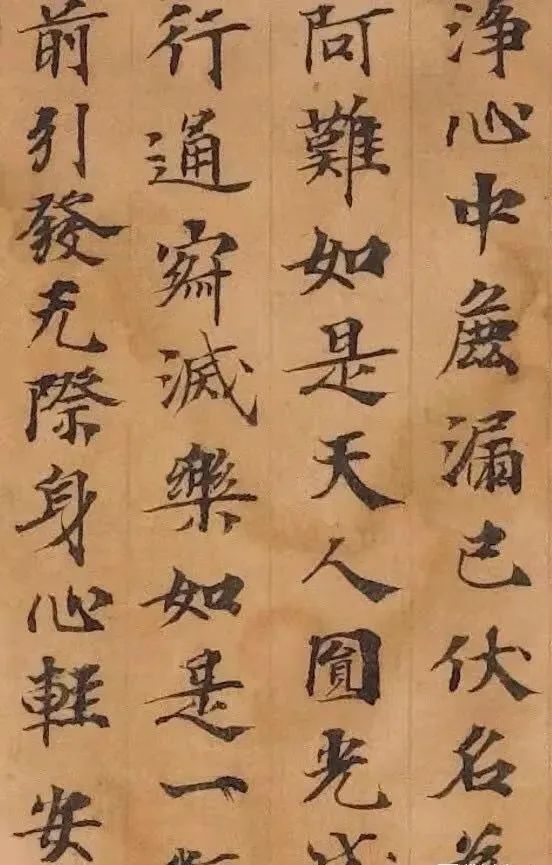 浄心中麁漏已伏名
阿難如是天人圓光
行通寂滅樂如是一
前引發无際身心輕安